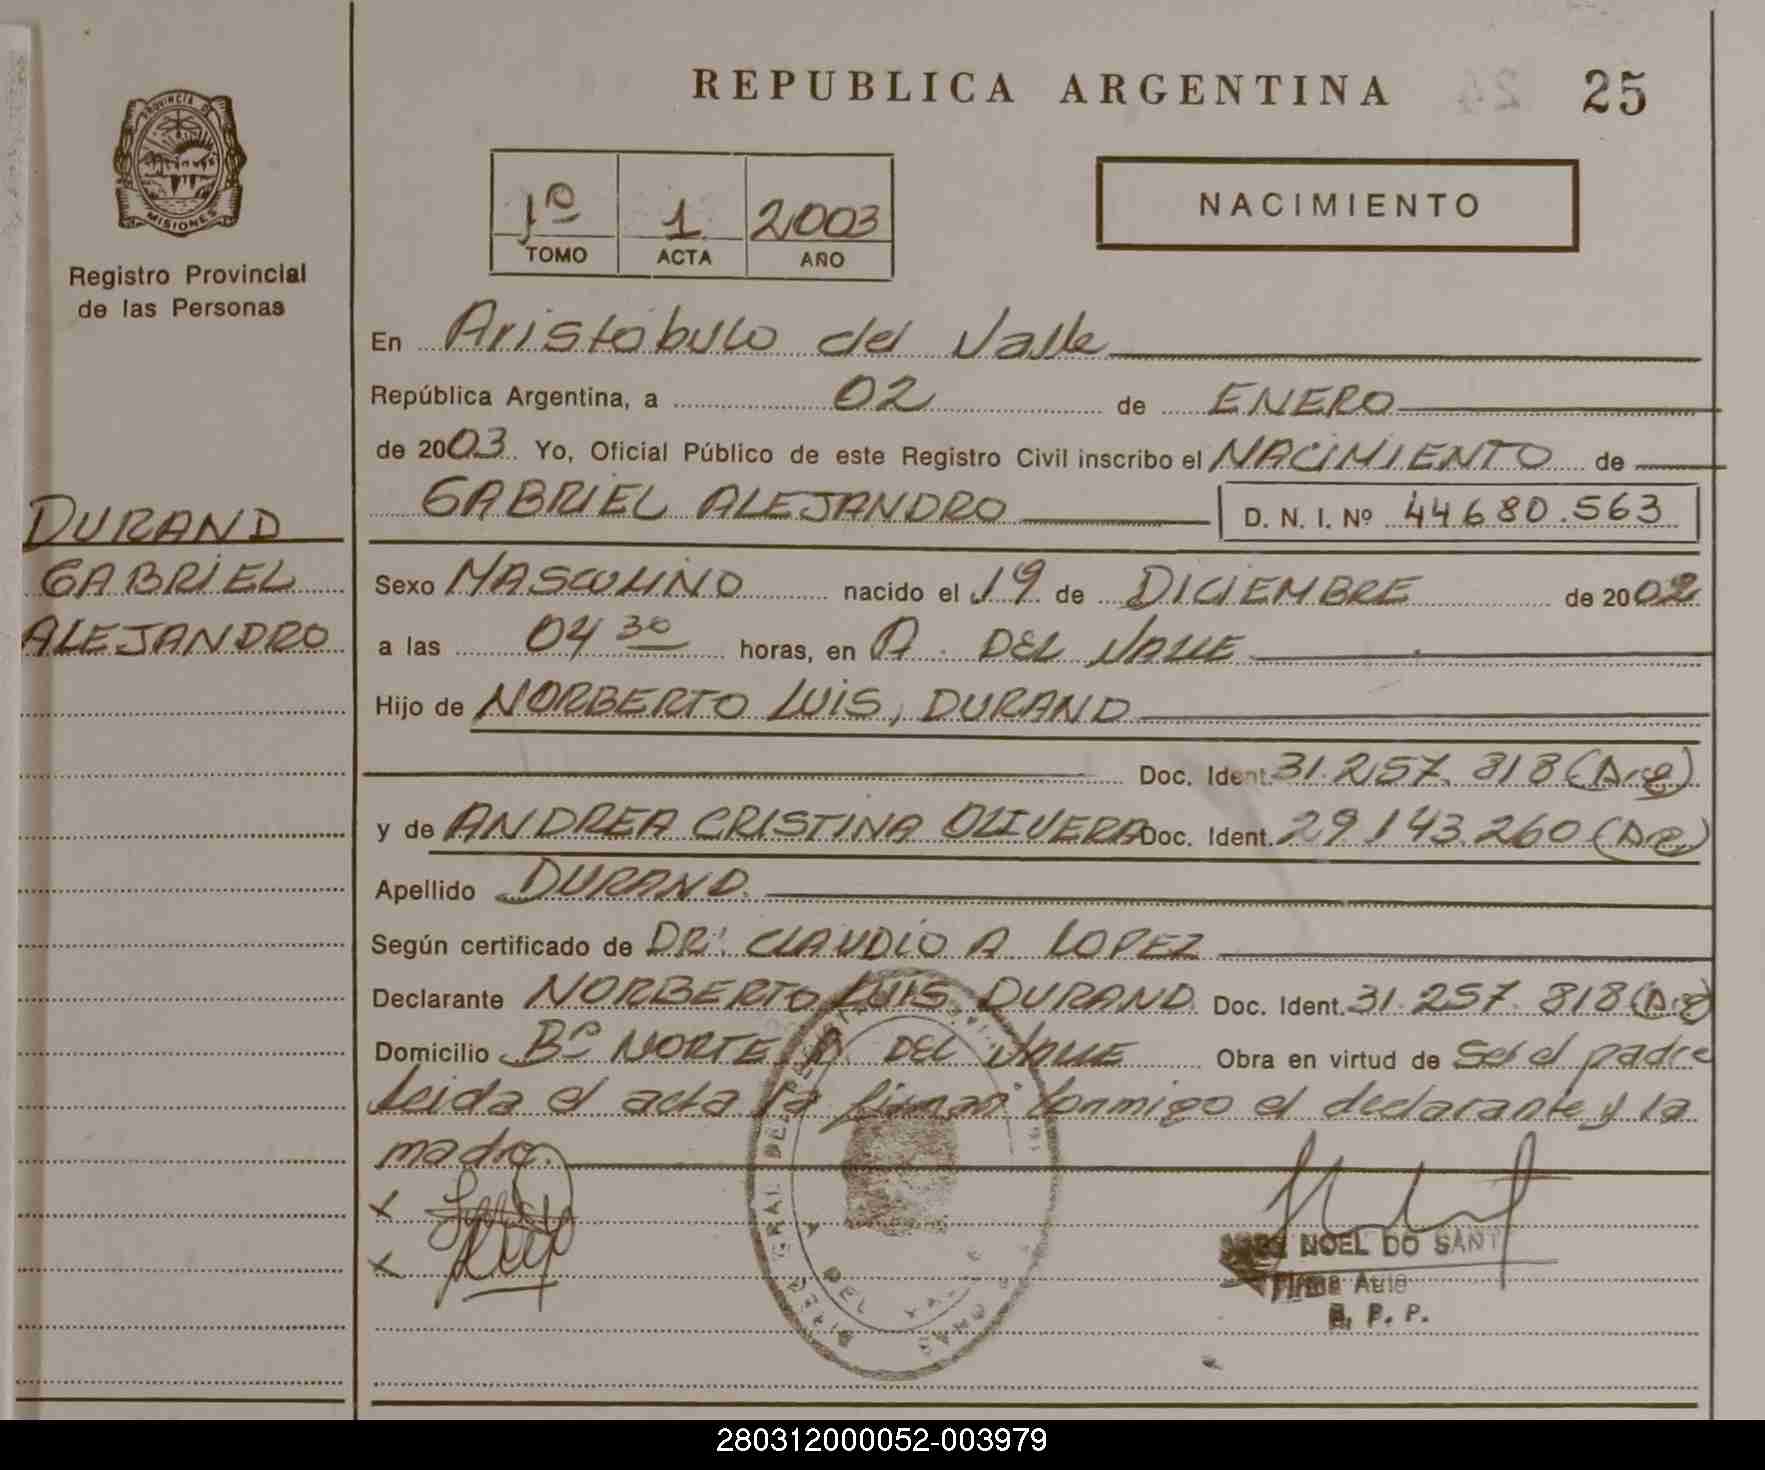 REPUBLICA ARGENTINA 25
PROVINCIA DE
MISIONES
Registro Provincial
de las Personas
1º 1 2003
TOMO ACTA AÑO
NACIMIENTO
En Aristóbulo del Valle
República Argentina, a 02 de ENERO
de 2003. Yo, Oficial Público de este Registro Civil inscribo el NACIMIENTO de
GABRIEL ALEJANDRO D. N. I. Nº 44680.563
DURAND
GABRIEL
ALEJANDRO
Sexo MASCULINO nacido el 19 de DICIEMBRE de 2002
a las 04 30 horas, en A. DEL VALLE
Hijo de NORBERTO LUIS, DURAND
Doc. Ident. 31.257.818 (Arg)
y de ANDREA CRISTINA OLIVERA Doc. Ident. 29.143.260 (Arg)
Apellido DURAND.
Según certificado de DR: CLAUDIO A LOPEZ
Declarante NORBERTO LUIS DURAND Doc. Ident. 31.257.818 (Arg)
Domicilio Bº NORTE A DEL VALLE Obra en virtud de Ser el padre
Leida el acta la firman conmigo el declarante y la
madre.
X
X
NOEL DO SANT
Firma Au
R. P. P.
A DEL VALLE
280312000052-003979